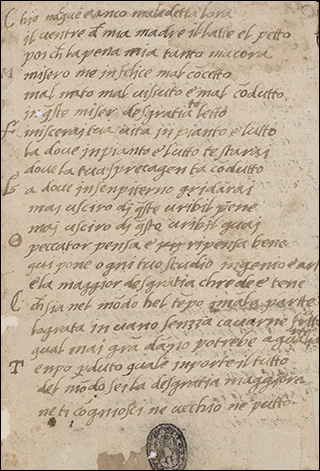 C hio nacque e anco maledetta lora
il ventre d mia madre il latte el petto
poi ch la pena mia tanto macora
M misero me infelice mal cōcetto
mal nato mal vissuto e mal cōdutto
in q̄ste miser desgratia letto
F iniscerai tua vita in pianto e lutto
la dove in pianto e lutto te starai
dove la tua sprecagenta cōdutto
L a dove insenpiterno gridarai
mai usciro di q̄ste uribil pene
mai usciro di q̄ste uribil guai
O peccator pensa e ripensa bene
qui pone ogni tuo studio ingenio e art
e la maggior desgratia chrede e tene
C h sia nel mōdo hel tepo in mala partte
lograta in vano senzza cavarne frutto
qual mai grā dano potrebe
T enpo pduto quale inporte il tutto
del modo sei la desgratia maggiore
ne ti cogniosci ne vechio ne putto